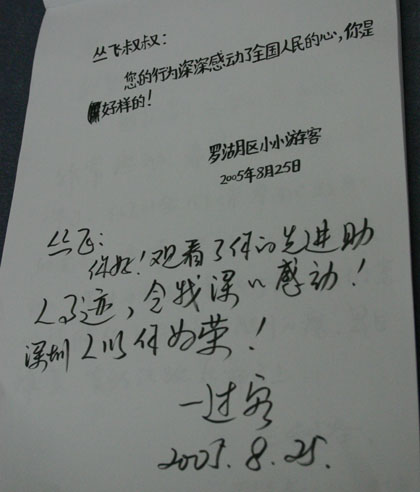 丛飞叔叔：
您的行为深深感动了全国人民的心，你是
好样的！
罗湖区小小游客
2005年8月25日
丛飞：
你好！观看了你的先进助
人事迹，令我深以感动！
深圳人以你为荣！
一过客
2005.8.25.